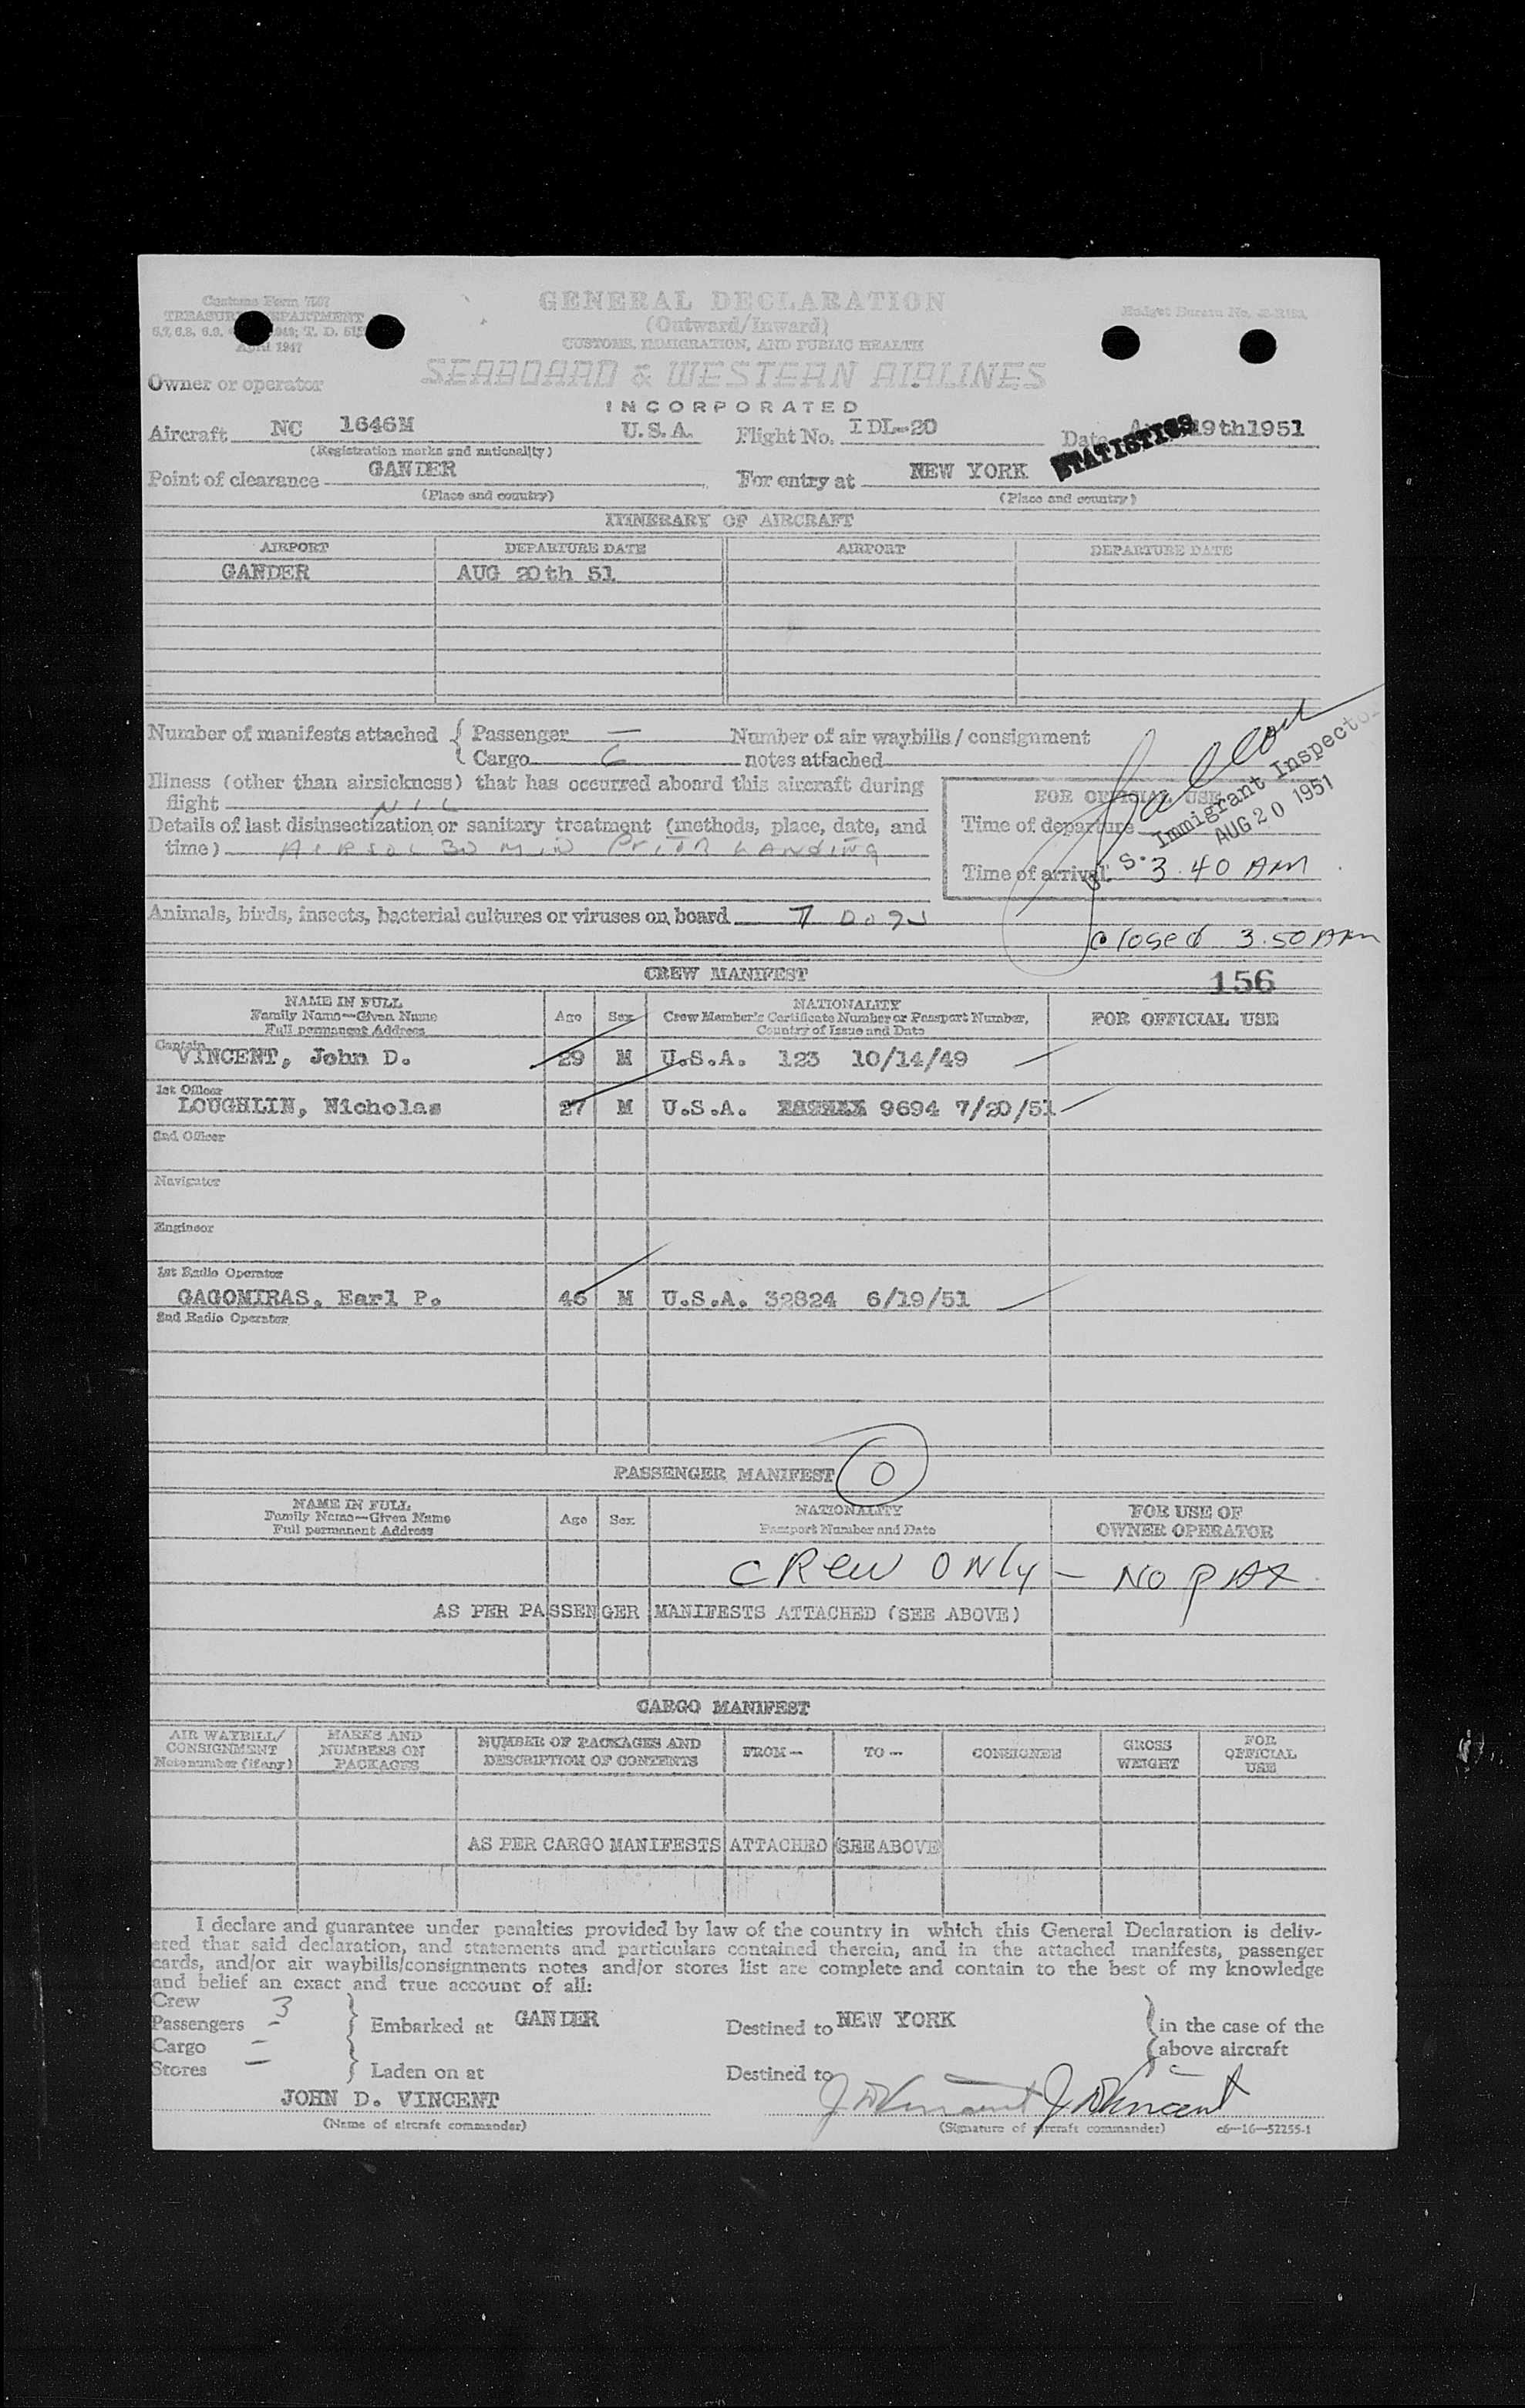 Customs Form 7507
GENERAL DECLARATION
TREASURY DEPARTMENT
(Outward/Inward)
April 1947
CUSTOMS, IMMIGRATION, AND PUBLIC HEALTH
Owner or operator
SEABOARD & WESTERN AIRLINES
INCORPORATED
Aircraft NC 1646M U.S.A. Flight No. IDL-20 Date 19th1951
STATISTICS
(Registration marks and nationality)
Point of clearance GANDER For entry at NEW YORK
(Place and country) (Place and country)
ITINERARY OF AIRCRAFT
AIRPORT DEPARTURE DATE AIRPORT DEPARTURE DATE
GANDER AUG 20th 51
Number of manifests attached { Passenger — Number of air waybills / consignment
Cargo 6 notes attached
Illness (other than airsickness) that has occurred aboard this aircraft during
flight NIL
FOR OFFICIAL USE
Details of last disinsectization or sanitary treatment (methods, place, date, and
time) 30 MIN PRIOR LANDING
Time of departure
U. S. Immigrant Inspector
AUG 20 1951
Time of arrival 3.40 AM
Animals, birds, insects, bacterial cultures or viruses on board 7 Dogs
closed 3.50 AM
CREW MANIFEST
156
NAME IN FULL
Family Name—Given Name
Full permanent Address
Age Sex
NATIONALITY
Crew Member's Certificate Number or Passport Number,
Country of Issue and Date
FOR OFFICIAL USE
Captain
VINCENT, John D. 29 M U.S.A. 123 10/14/49
1st Officer
LOUGHLIN, Nicholas 27 M U.S.A. 9694 7/20/51
2nd Officer
Navigator
Engineer
1st Radio Operator
GAGOMIRAS, Earl P. 46 M U.S.A. 32824 6/19/51
2nd Radio Operator
PASSENGER MANIFEST 0
NAME IN FULL
Family Name—Given Name
Full permanent Address
Age Sex
NATIONALITY
Passport Number and Date
FOR USE OF
OWNER OPERATOR
CREW ONLY — NO PAX
AS PER PASSENGER MANIFESTS ATTACHED (SEE ABOVE)
CARGO MANIFEST
AIR WAYBILL/
CONSIGNMENT
Note number (if any)
MARKS AND
NUMBERS ON
PACKAGES
NUMBER OF PACKAGES AND
DESCRIPTION OF CONTENTS
FROM—
TO—
CONSIGNEE
GROSS
WEIGHT
FOR
OFFICIAL
USE
AS PER CARGO MANIFESTS ATTACHED (SEE ABOVE
I declare and guarantee under penalties provided by law of the country in which this General Declaration is deliv-
ered that said declaration, and statements and particulars contained therein, and in the attached manifests, passenger
cards, and/or air waybills/consignments notes and/or stores list are complete and contain to the best of my knowledge
and belief an exact and true account of all:
Crew 3
Passengers - } Embarked at GANDER Destined to NEW YORK in the case of the
Cargo - above aircraft
Stores — } Laden on at Destined to
JOHN D. VINCENT J D Vincent J D Vincent
(Name of aircraft commander) (Signature of aircraft commander) c6—16—52255-1